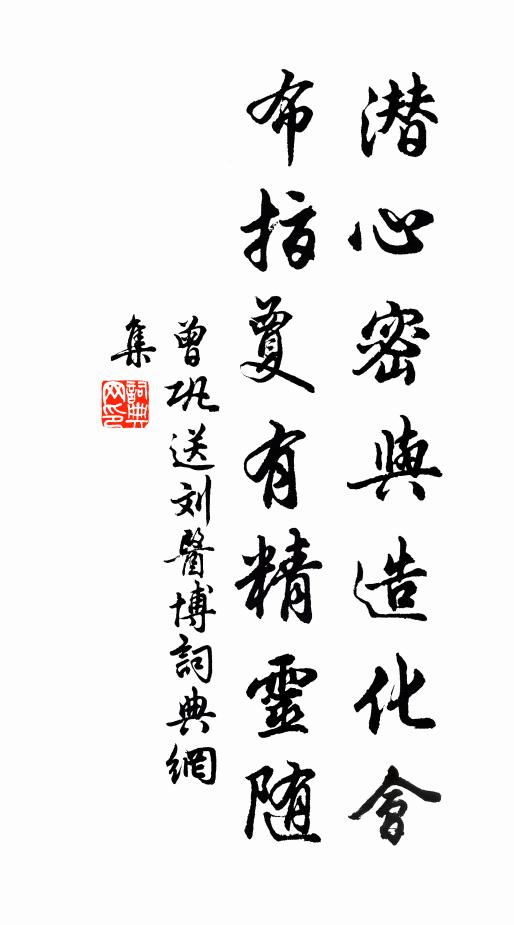 潜心密與造化會
布指夐有精靈随
曾巩送刘醫博詞典網
集
詞典网印